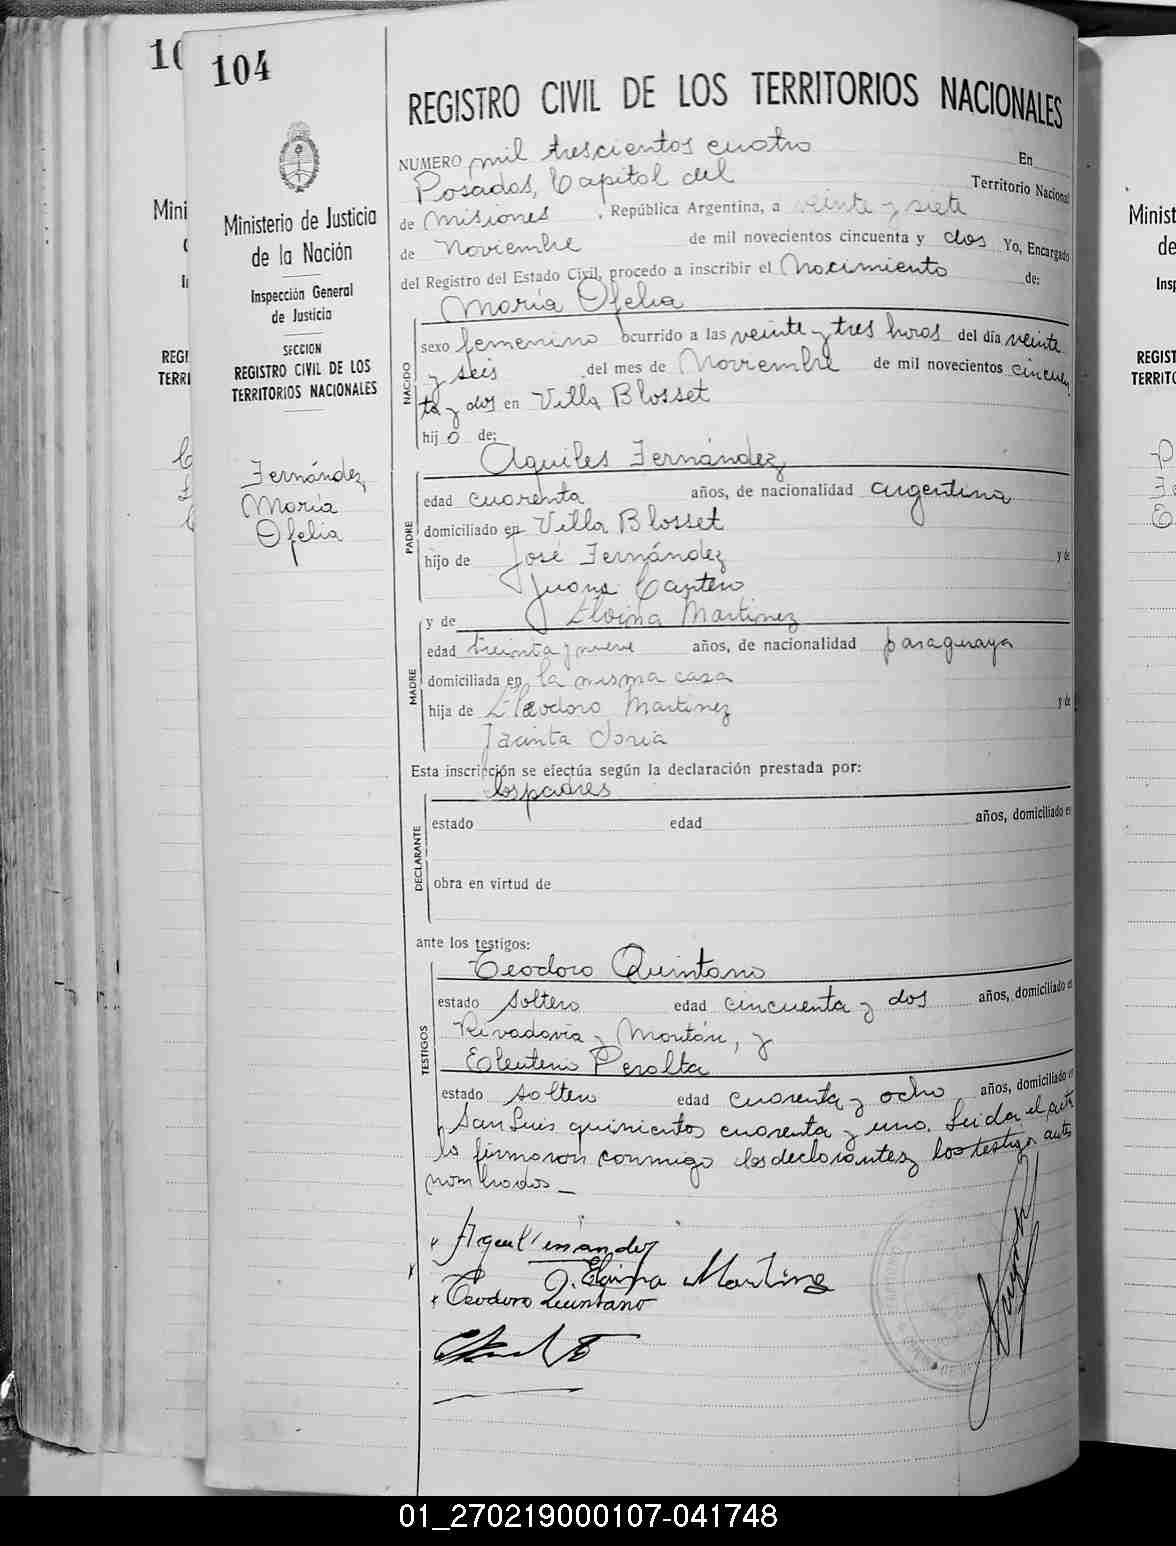 104
REGISTRO CIVIL DE LOS TERRITORIOS NACIONALES
Ministerio de Justicia
de la Nación
Inspección General
de Justicia
SECCION
REGISTRO CIVIL DE LOS
TERRITORIOS NACIONALES
Fernández
María
Ofelia
NUMERO mil trescientos cuatro En
Posadas, Capital del Territorio Nacional
de Misiones, República Argentina, a veinte y siete
de Noviembre de mil novecientos cincuenta y dos Yo, Encargado
del Registro del Estado Civil, procedo a inscribir el Nacimiento de:
María Ofelia
NACIDO
sexo femenino ocurrido a las veinte y tres horas del día veinte
y seis del mes de Noviembre de mil novecientos cincuen
ta y dos en Villa Blosset
hijo de:
Aquiles Fernández
PADRE
edad cuarenta años, de nacionalidad argentina
domiciliado en Villa Blosset
hijo de José Fernández y de
Juana Cantero
y de Eloina Martinez
MADRE
edad treinta y nueve años, de nacionalidad paraguaya
domiciliada en la misma casa
hija de Eleodoro Martinez y de
Jacinta Soria
Esta inscripción se efectúa según la declaración prestada por:
los padres
DECLARANTE
estado edad años, domiciliado en
obra en virtud de
ante los testigos:
Teodoro Quintano
TESTIGOS
estado soltero edad cincuenta y dos años, domiciliado en
Rivadavia y , y
Eleuterio Peralta
estado soltero edad cuarenta y ocho años, domiciliado en
San Luis quinientos cuarenta y uno. Leida el acta
la firmaron conmigo los declarantes y los testigos antes
nombrados_
Eloina Martinez
Teodoro Quintano
01_270219000107-041748